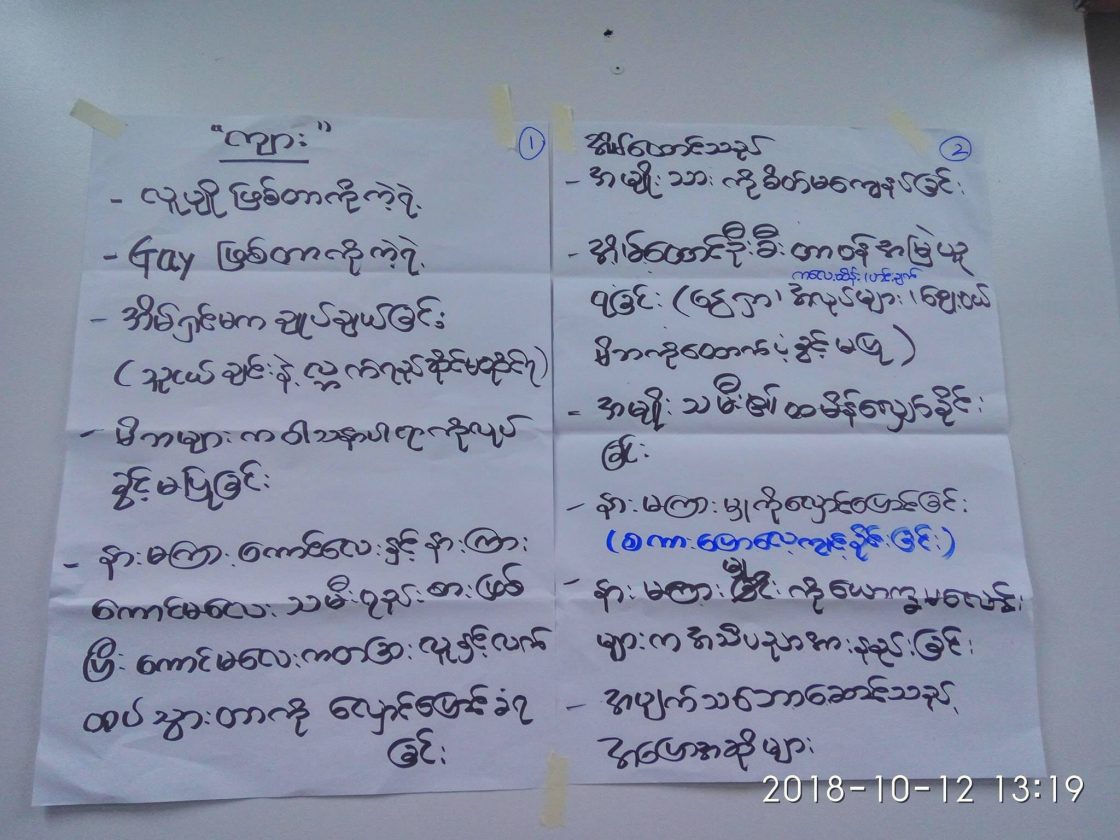 "ကျား" ①
- လူပျို ဖြစ်တာကိုကဲ့ရဲ့
- Gay ဖြစ်တာကိုကဲ့ရဲ့
- အိမ်ရှင်မက ချုပ်ချယ်ခြင်း
(သူငယ်ချင်းနဲ့ လ္ဘက်ရည်ဆိုင်မထိုင်ရ)
- မိဘများက ဝါသနာပါရာကိုလုပ်
ခွင့်မပြုခြင်း
- နားမကြားကောင်လေးနှင့် နားကြား
ကောင်မလေး သမီးရည်းစားဖြစ်
ပြီး ကောင်မလေးကတခြားလူနှင့်လက်
ထပ်သွားတာကို လှောင်ပြောင်ခံရ
ခြင်း
②
အိမ်ထောင်သည်
- အမျိုးသားကိုစိတ်မကျေနပ်ခြင်း
- အိမ်ထောင်ဦးစီး တာဝန်အမြဲယူ
ကလေးထိန်း၊ဟင်းချက်
ရခြင်း (ငွေရှာ၊ အိမ်လုပ်များ၊ ဈေးဝယ်
မိဘကိုထောက်ပံ့ခွင့်မပြု)
- အမျိုးသမီး၏ထမိန်လျှော်ခိုင်း
ခြင်း
- နားမကြားမှုကိုလှောင်ပြောင်ခြင်း
(စကားပြောလေ့ကျင့်ခိုင်းခြင်း)
မှု
- နားမကြား ကိုယောက္ခမလောင်း
များက အသိပညာအားနည်းခြင်း
- အပျက်သဘောဆောင်သည့်
အပြောအဆိုများ
2018-10-12 13:19